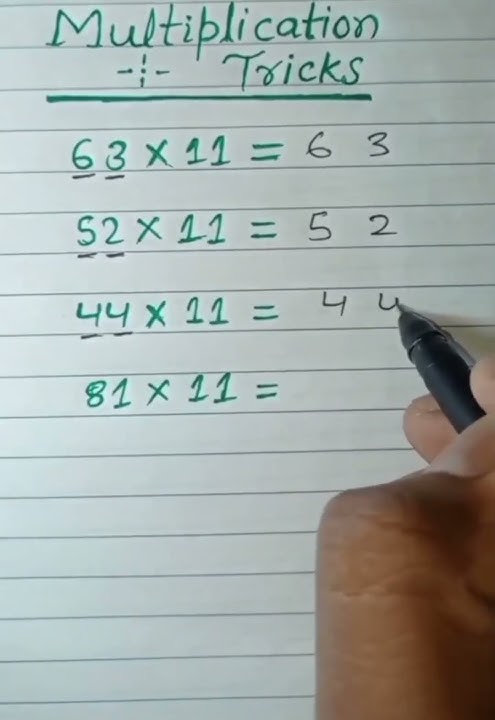 Multiplication
-:- Tricks
63 × 11 = 6 3
52 × 11 = 5 2
44 × 11 = 4 4
81 × 11 =